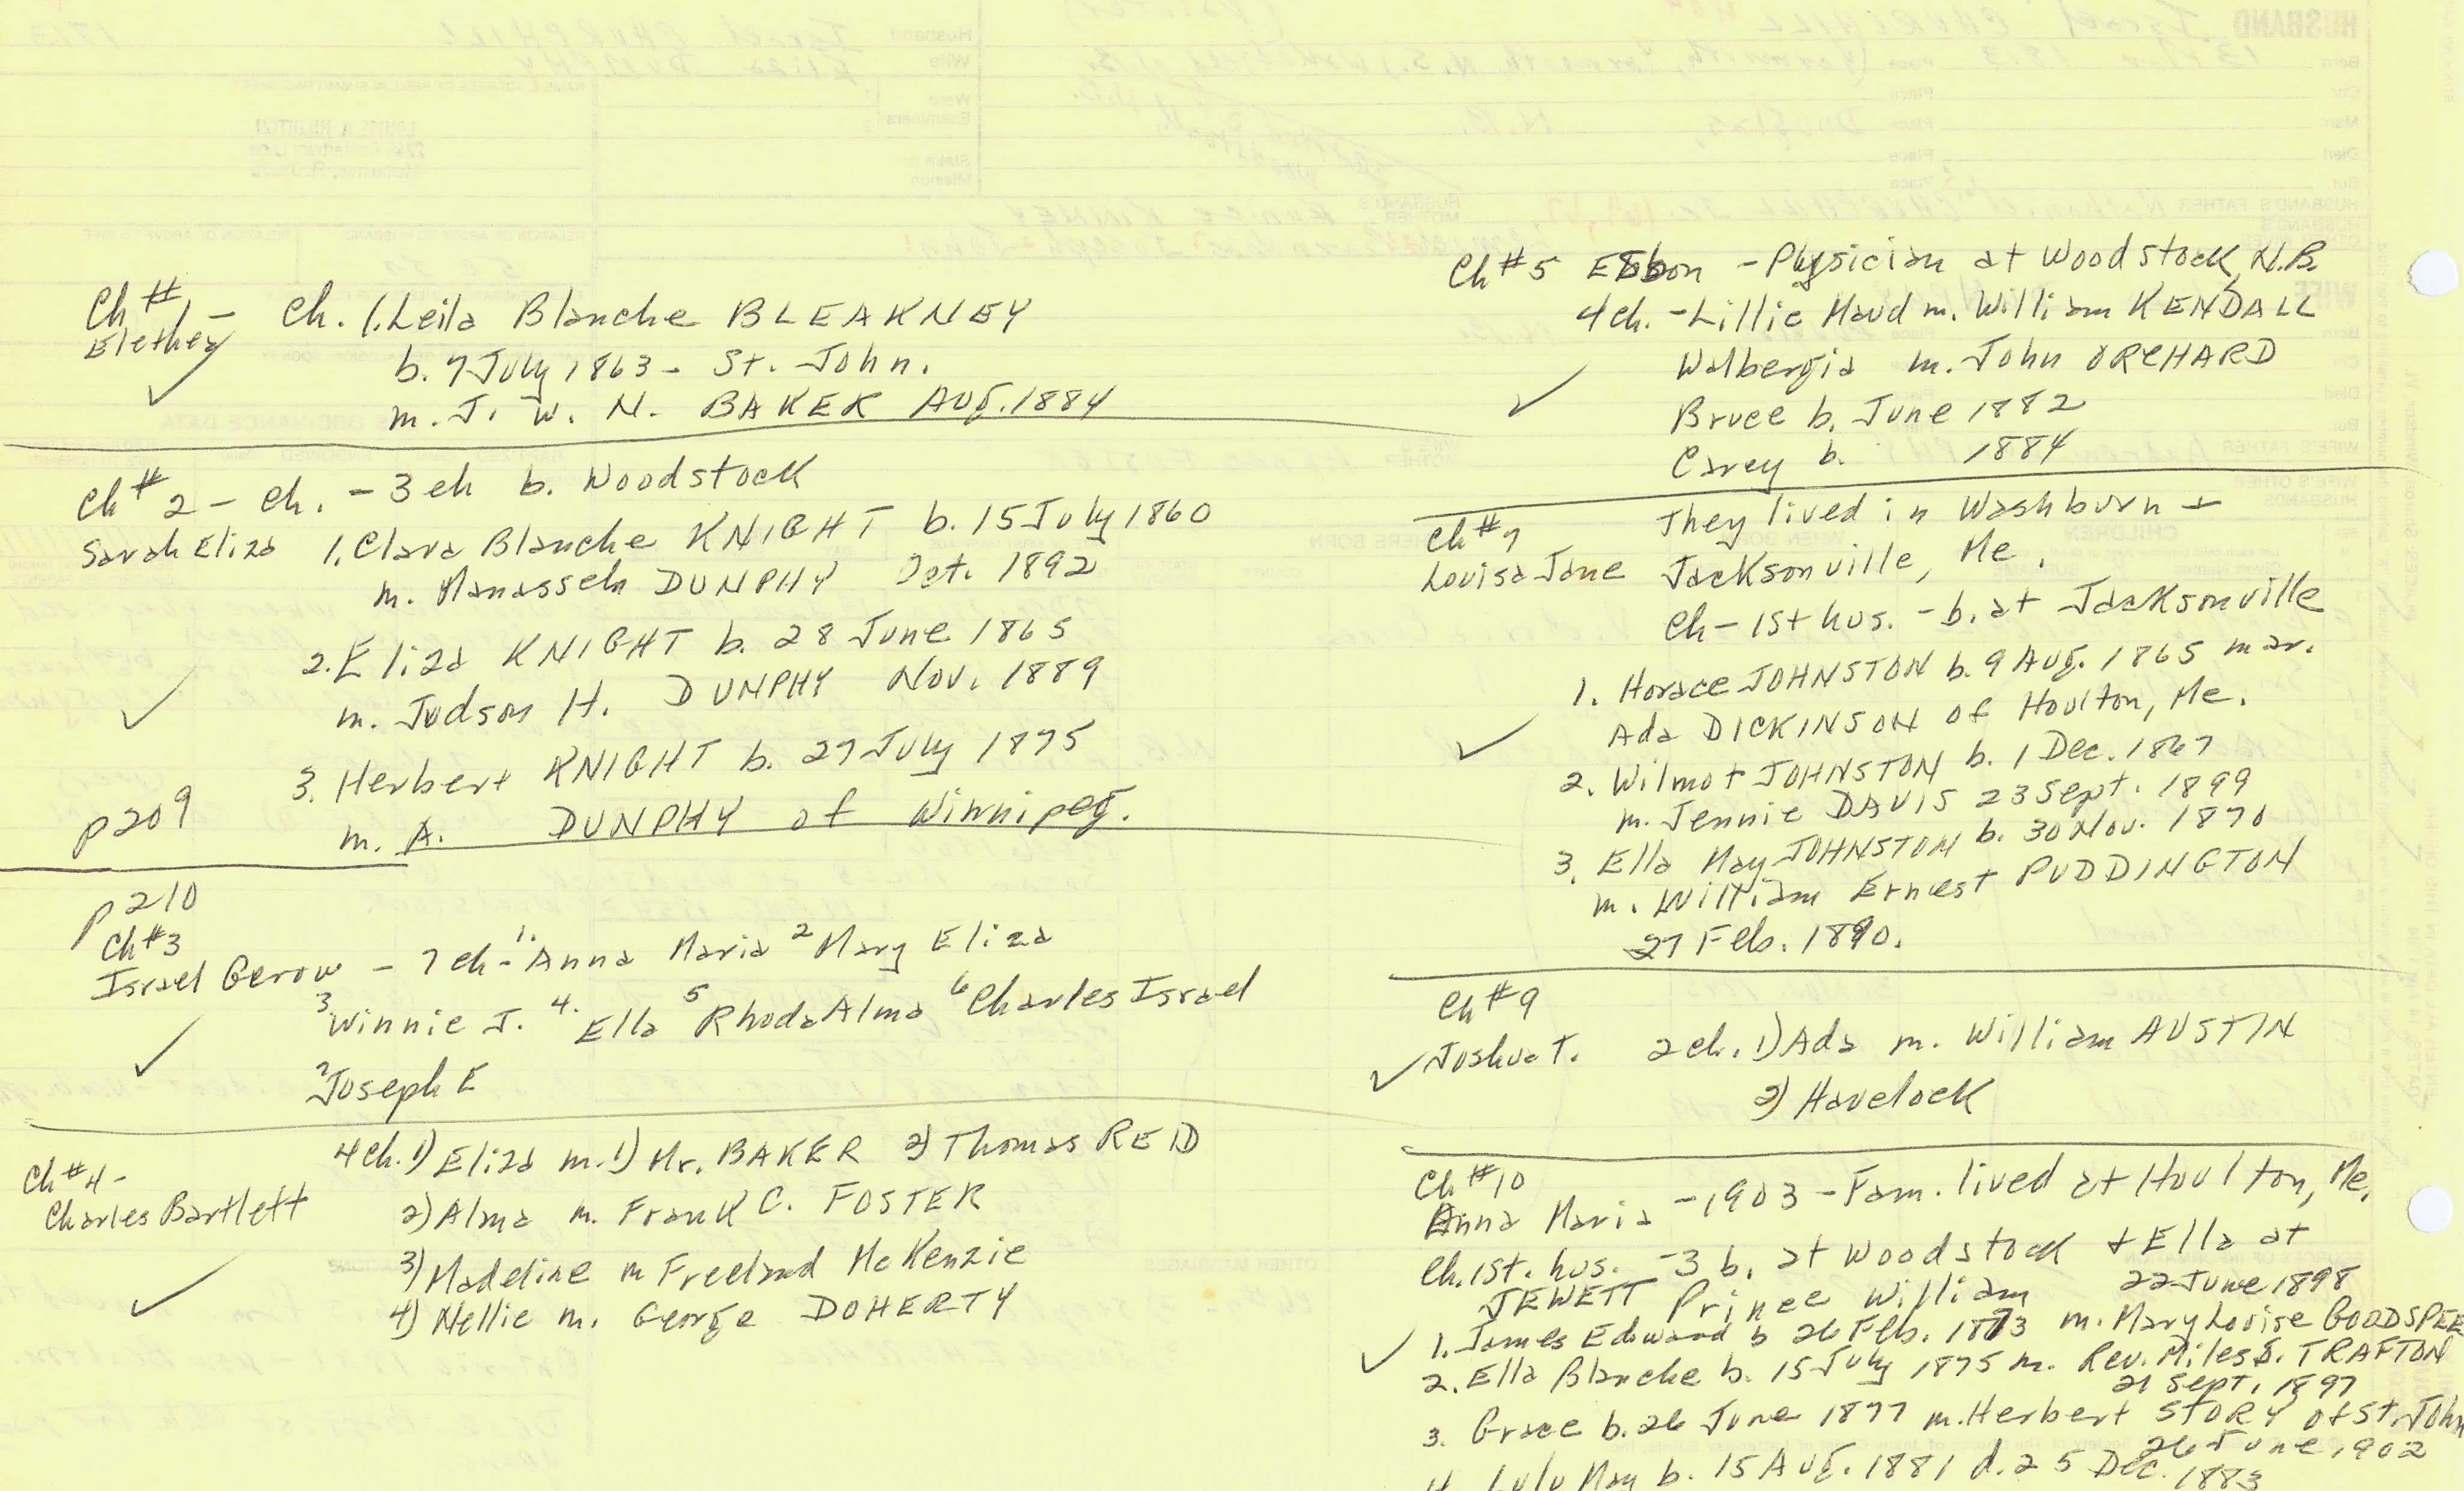 Ch #1 - Ch. 1. Leila Blanche BLEAKNEY
Elether
b. 7 July 1863 - St. John.
m. J. W. N. BAKER Aug. 1884
Ch # 2 - Ch. - 3 ch b. Woodstock
Sarah Eliza 1. Clara Blanche KNIGHT b. 15 July 1860
m. Manasseh DUNPHY Oct. 1892
2. Eliza KNIGHT b. 28 June 1865
m. Judson H. DUNPHY Nov. 1889
3. Herbert KNIGHT b. 27 July 1875
p 209
m. A. DUNPHY of Winnipeg.
p 210
Ch #3
Israel Gerow - 7 ch - 1. Anna Maria 2 Mary Eliza
3. Winnie J. 4. Ella 5 Rhoda Alma 6 Charles Israel
7 Joseph E
Ch #4 - 4 ch. 1) Eliza m. 1) Mr. BAKER 2) Thomas REID
Charles Bartlett 2) Alma m. Frank C. FOSTER
3) Madeline m Freeland McKenzie
4) Nellie m. George DOHERTY
Ch #5 Ebbon - Physician at Woodstock, N.B.
4 ch. - Lillie Maud m. William KENDALL
Walbergia m. John ORCHARD
Bruce b. June 1882
Carey b. 1884
Ch #7 They lived in Washburn +
Louisa Jane Jacksonville, Me.
Ch - 1st hus. - b. at Jacksonville
1. Horace JOHNSTON b. 9 Aug. 1865 mar.
Ada DICKINSON of Houlton, Me.
2. Wilmot JOHNSTON b. 1 Dec. 1867
m. Jennie DAVIS 23 Sept. 1899
3. Ella May JOHNSTON b. 30 Nov. 1870
m. William Ernest PUDDINGTON
27 Feb. 1890.
Ch #9
Joshua T. 2 ch. 1) Ada m. William AUSTIN
2) Havelock
Ch #10
Anna Maria - 1903 - Fam. lived at Houlton, Me.
Ch. 1st. hus. - 3 b. at Woodstock + Ella at
JEWETT Prince William 22 June 1898
1. James Edward b 26 Feb. 1873 m. Mary Louise GOODSPEE
2. Ella Blanche b. 15 July 1875 m. Rev. Miles S. TRAFTON
21 Sept. 1897
3. Grace b. 26 June 1877 m. Herbert STORY of St. John
26 June 1902
4. Lulu May b. 15 Aug. 1881 d. 25 Dec. 1883